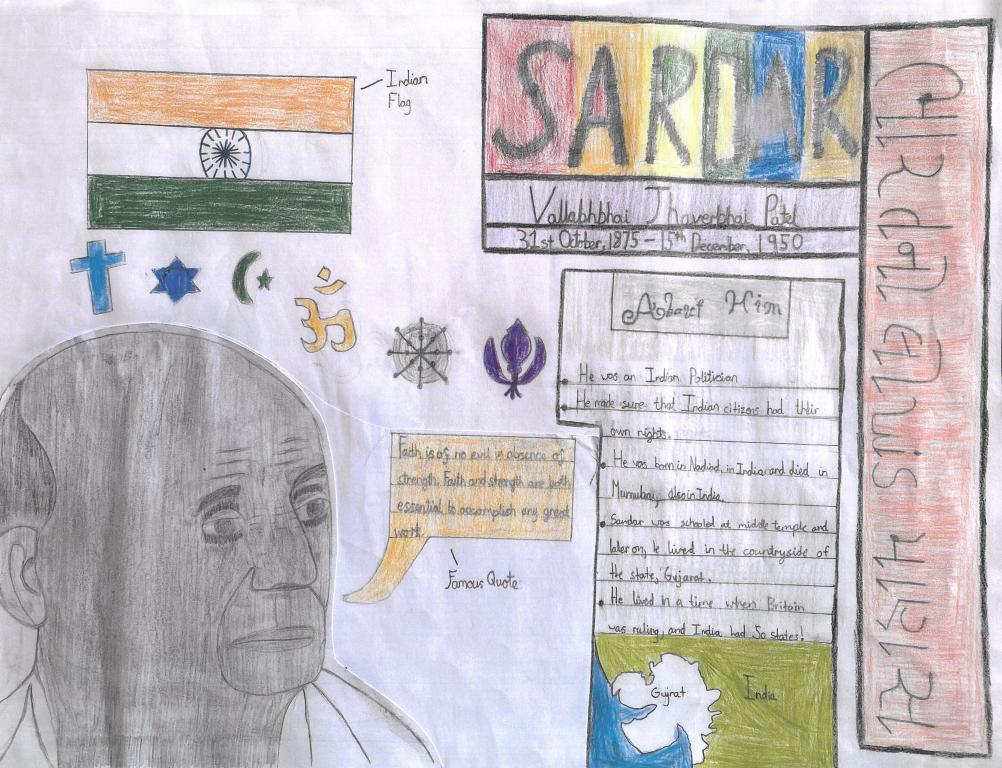 Indian
Flag
SARDAR
Vallabhbhai Jhaverbhai Patel
31st October, 1875 - 15th December, 1950
About Him
He was an Indian Politician
He made sure that Indian citizens had their
own rights.
He was born in Nadiad, in India and died in
Mumubay, also in India.
Sardar was schooled at middle temple and
later on, he lived in the countryside of
the state, Gujarat.
He lived in a time when Britain
was ruling, and India had 50 states!
Faith is of no evil in absence of
strength. Faith and strength are both
essential to accomplish any great
work.
Famous Quote
Gujrat
India